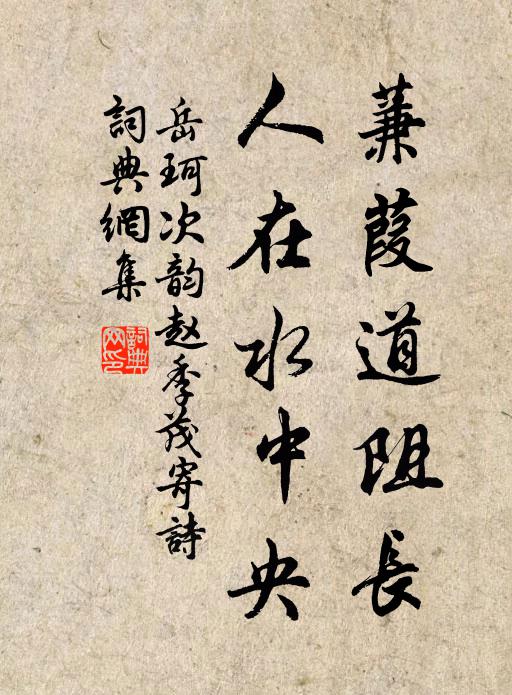 蒹葭道阻長
人在水中央
岳珂次韵赵季茂寄詩
詞典網集
詞典网印